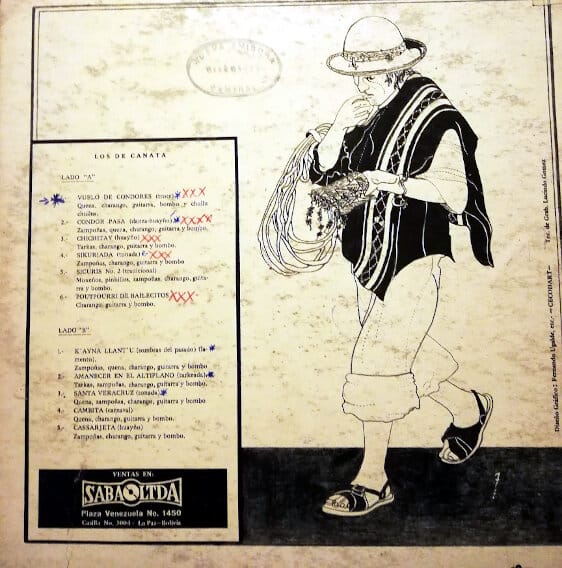 LOS DE CANATA
LADO "A"
VUELO DE CONDORES (trote) XXX
Quena, charango, guitarra, bombo y challa
chullus.
2.- CONDOR PASA (danza-huayño) XXXX
Zampoñas, quena, charango, guitarra y bombo.
3.- CHICHITAY (huayño) XXX
Tarkas, charango, guitarra y bombo.
4.- SIKURIADA (tonada) XXX
Zampoñas, charango, guitarra y bombo
5.- SICURIS No. 2 (tradicional)
Moseños, pinkillos, zampoñas, charango, guita-
rra y bombo.
6.- POUTPOURRI DE BAILECITOS XXX
Charango, guitarra y bombo.
LADO "B"
1.- K'AYNA LLANT'U (sombras del pasado) (la-
mento).
Zampoñas, quena, charango, guitarra y bombo
2.- AMANECER EN EL ALTIPLANO (tarkeada)
Tarkas, zampoñas, charango, guitarra y bombo.
3.- SANTA VERACRUZ (tonada)
Quena, zampoñas, charango, guitarra y bombo
4.- CAMBITA (carnaval)
Quena, charango, guitarra y bombo.
5.- CASSARJETA (huayño)
Zampoñas, charango, guitarra y bombo.
VENTAS EN:
SABA LTDA
Plaza Venezuela No. 1450
Casilla No. 3004 - La Paz-Bolivia
Diseño Gráfico: Fernando Ugalde, etc. -CECODART- Tec. de Grab. Lucindo Gomez